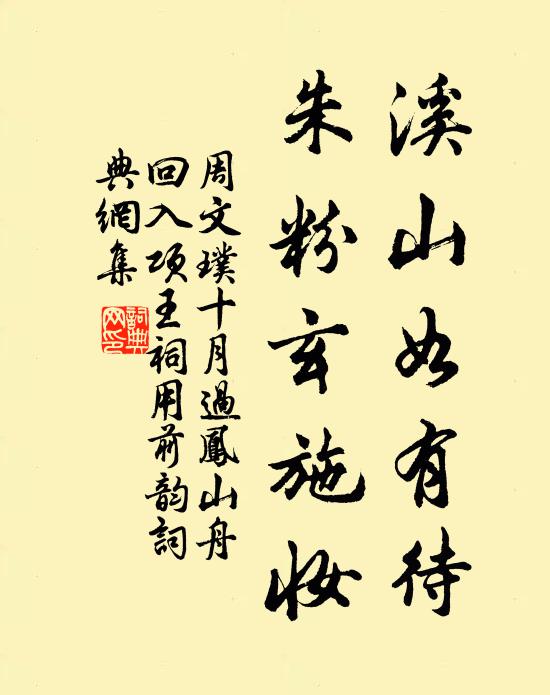 溪山如有待
朱粉玄施妆
周文璞十月過鳳山舟
回入項王祠用前韵詞
典網集
詞典网印